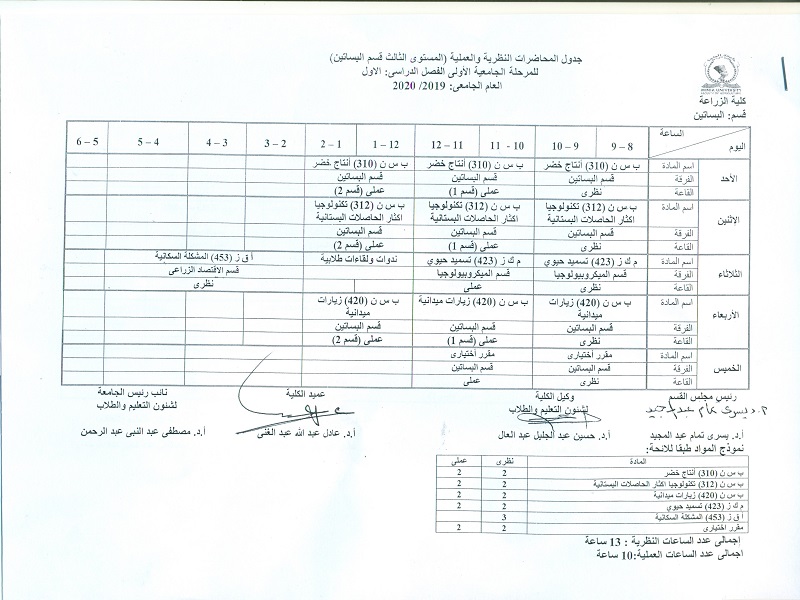 جدول المحاضرات النظرية والعملية (المستوى الثالث قسم البساتين)
للمرحلة الجامعية الأولى الفصل الدراسى: الاول
العام الجامعى: 2019/ 2020
كلية الزراعة
قسم: البساتين
الساعة
اليوم
8 – 9
9 – 10
10 - 11
11 – 12
12 – 1
1 – 2
2 – 3
3 – 4
4 – 5
5 – 6
الأحد
اسم المادة
ب س ن (310) أنتاج خضر
ب س ن (310) أنتاج خضر
ب س ن (310) أنتاج خضر
الفرقة
قسم البساتين
قسم البساتين
قسم البساتين
القاعة
نظرى
عملى (قسم 1)
عملى (قسم 2)
الإثنين
اسم المادة
ب س ن (312) تكنولوجيا
اكثار الحاصلات البستانية
ب س ن (312) تكنولوجيا
اكثار الحاصلات البستانية
ب س ن (312) تكنولوجيا
اكثار الحاصلات البستانية
الفرقة
قسم البساتين
قسم البساتين
قسم البساتين
القاعة
نظرى
عملى (قسم 1)
عملى (قسم 2)
الثلاثاء
اسم المادة
م ك ز (423) تسميد حيوي
م ك ز (423) تسميد حيوي
ندوات ولقاءات طلابية
أ ق ز (453) المشكلة السكانية
الفرقة
قسم الميكروبيولوجيا
قسم الميكروبيولوجيا
قسم الاقتصاد الزراعى
القاعة
نظرى
عملى
نظرى
الأربعاء
اسم المادة
ب س ن (420) زيارات
ميدانية
ب س ن (420) زيارات ميدانية
ب س ن (420) زيارات
ميدانية
الفرقة
قسم البساتين
قسم البساتين
قسم البساتين
القاعة
نظرى
عملى (قسم 1)
عملى (قسم 2)
الخميس
اسم المادة
مقرر أختيارى
مقرر أختيارى
الفرقة
قسم البساتين
قسم البساتين
القاعة
نظرى
عملى
رئيس مجلس القسم
وكيل الكلية
عميد الكلية
نائب رئيس الجامعة
لشئون التعليم والطلاب
لشئون التعليم والطلاب
أ.د. يسرى تمام عبد المجيد
أ.د. حسين عبد الجليل عبد العال
أ.د. عادل عبد الله عبد الغنى
أ.د. مصطفى عبد النبى عبد الرحمن
نموذج المواد طبقا للائحة:
المادة
نظرى
عملى
ب س ن (310) أنتاج خضر
2
2
ب س ن (312) تكنولوجيا اكثار الحاصلات البستانية
2
2
ب س ن (420) زيارات ميدانية
2
2
م ك ز (423) تسميد حيوي
2
2
أ ق ز (453) المشكلة السكانية
3
مقرر اختيارى
2
2
اجمالى عدد الساعات النظرية : 13 ساعة
اجمالى عدد الساعات العملية:10 ساعة